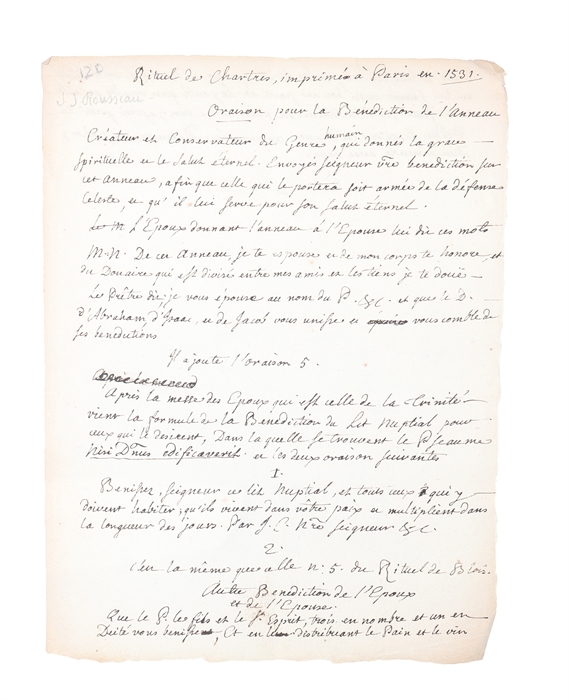 12e
J J Rousseau
Rituel de Chartres, imprimée à Paris en 1531.
Oraison pour la Bénédiction de l'anneau
Créateur et Conservateur du Genre humain, qui donnés la grace
spirituelle et le Salut éternel. Envoyés seigneur vtre benediction sur
cet anneau, afin que celle qui le portera soit armée de la défense
Celeste, et qu'il lui serve pour son salut éternel.
L'Epoux donnant l'anneau à l'Epouse lui dit ces mots
M. N. De cet Anneau, je te espouse et de mon corps te honore, et
du Douaire qui est divisé entre mes amis et les tiens je te douë
Le Prêtre dit: je vous épouse au nom du P. &c. et que le D.
d'Abraham d'Isaac, et de Jacob vous unisse et vous comble de
ses benedictions
Il ajoute l'oraison 5.
Après la messe des Epoux qui est celle de la Trinité
vient la formule de la Bénédiction du Lit Nuptial pour
ceux qui le desirent, Dans la quelle se trouvent le Pseaume
Nisi Dnus ædificaverit et les deux oraison suivantes
I.
Benissez, seigneur ce lit Nuptial, et touts ceux qui y
doivent habiter; qu'ils vivent dans vôtre paix et multiplient dans
la longueur des jours. Par J. C. Nre seigneur &c.
2.
C'est la même que celle n. 5. du Rituel de Blois.
Autre Bénédiction de l'Epoux
et de l'Epouse.
Que le P. le fils et le St Esprit, trois en nombre et un en
Deité vous benisse, Et en distribuant le Pain et le vin